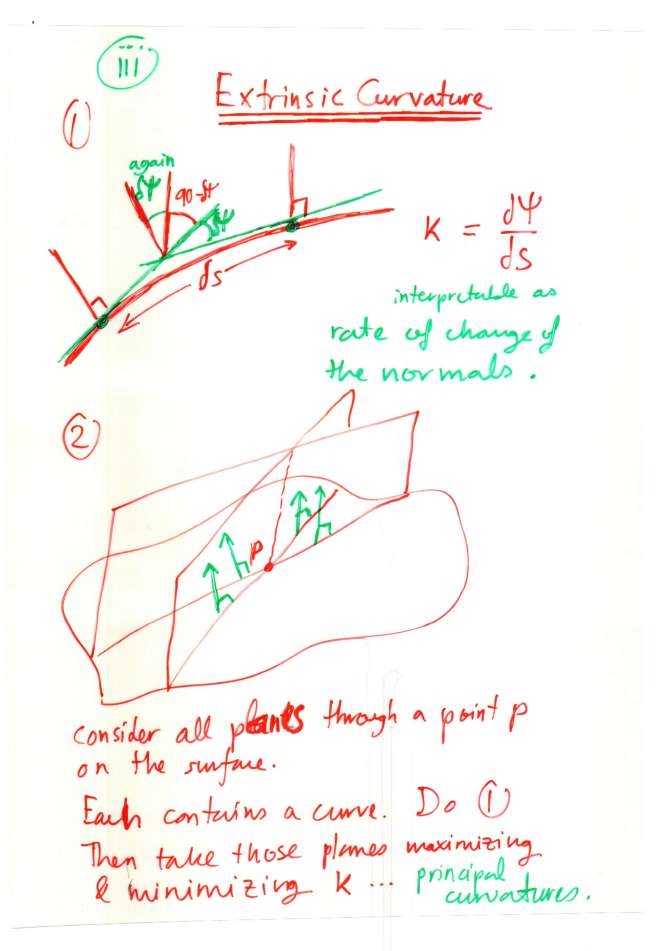 iii
Extrinsic Curvature
①
again
δΨ
90-δΨ
δΨ
ds
K = dΨ/ds
interpretable as
rate of change of
the normals.
②
P
consider all planes through a point p
on the surface.
Each contains a curve. Do ①
Then take those planes maximizing
& minimizing K ... principal
curvatures.